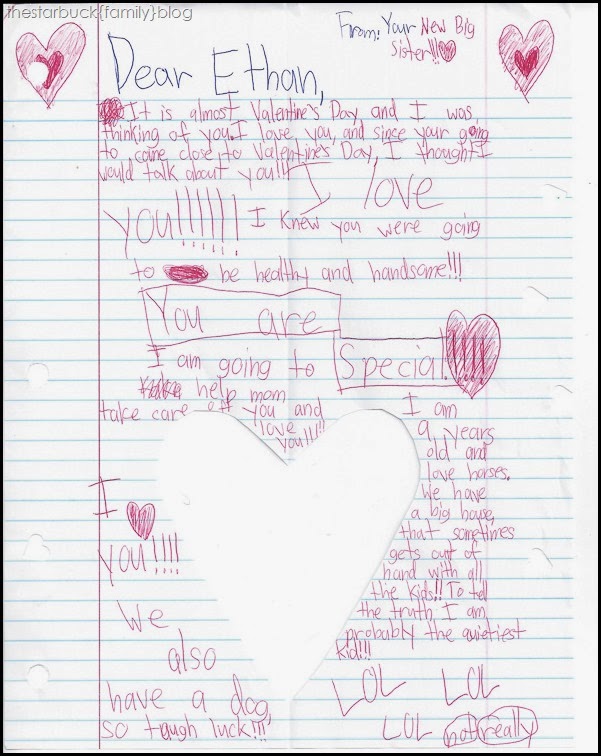 thestarbuck{family}blog
From: Your New Big
Sister!!!
Dear Ethan,
It is almost Valentine's Day and I was
thinking of you. I love you, and since your going
to come close to Valentine's Day, I thought I
would talk about you!!!
I love
you!!!!!! I knew you were going
to be healthy and handsome!!!
You are
Special!!!!!
I am going to
help mom
take care off you and
love
you!!!!
I am
9 years
old and
love horses.
We have
a big house,
that sometimes
gets out of
hand with all
the kids!! To tell
the truth I am
probably the quietiest
kid!!!
I
you!!!!
We
also
have a dog,
so tough luck!!!
LOL LOL
LOL not really